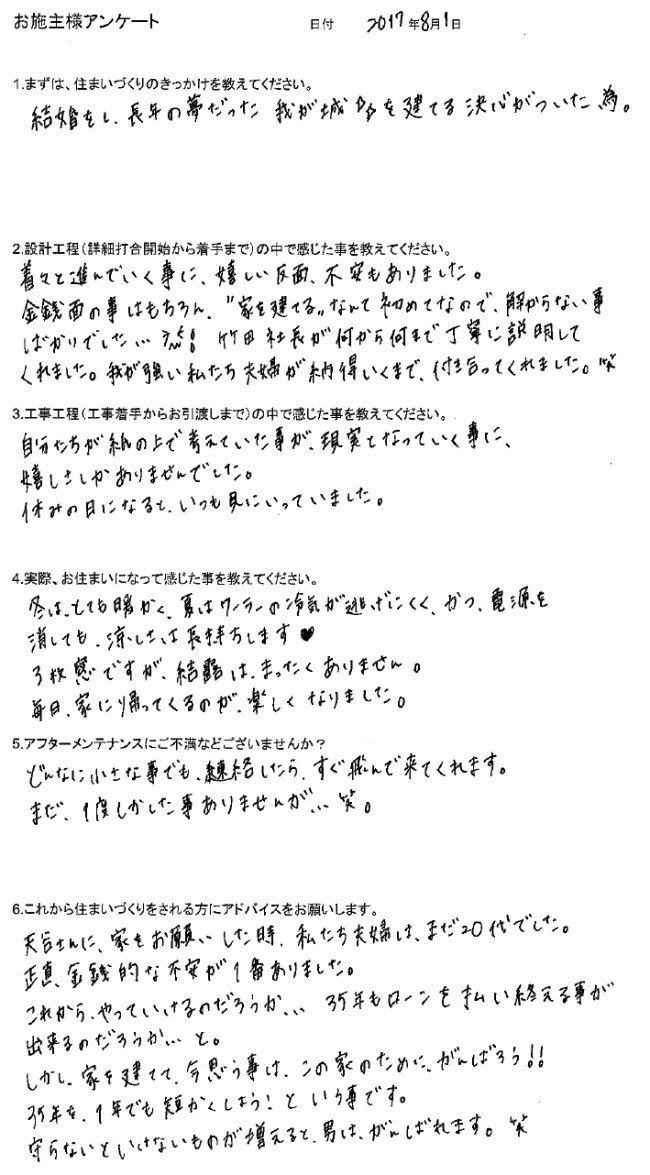 お施主様アンケート 日付 2017年8月1日
1.まずは、住まいづくりのきっかけを教えてください。
結婚をし、長年の夢だった 我が城 を建てる決心がついた為。
2.設計工程（詳細打合開始から着手まで）の中で感じた事を教えてください。
着々と進んでいく事に、嬉しい反面、不安もありました。
金銭面の事はもちろん、"家を建てる"なんて初めてなので、解からない事
ばかりでした… 竹田社長が何から何まで丁寧に説明して
くれました。我が強い私たち夫婦が納得いくまで、付き合ってくれました。笑
3.工事工程（工事着手からお引渡しまで）の中で感じた事を教えてください。
自分たちが紙の上で考えていた事が、現実となっていく事に、
嬉しさしかありませんでした。
休みの日になると、いつも見にいっていました。
4.実際、お住まいになって感じた事を教えてください。
冬は、とても暖かく、夏はクーラーの冷気が逃げにくく、かつ、電源を
消しても、涼しさは長持ちします♥
3枚窓ですが、結露は、まったくありません。
毎日、家に帰ってくるのが、楽しくなりました。
5.アフターメンテナンスにご不満などございませんか？
どんなに小さな事でも、連絡したら、すぐ飛んで来てくれます。
まだ、1度しかした事ありませんが… 笑。
6.これから住まいづくりをされる方にアドバイスをお願いします。
天谷さんに、家をお願いした時、私たち夫婦は、まだ20代でした。
正直、金銭的な不安が1番ありました。
これから、やっていけるのだろうか… 35年もローンを払い終える事が
出来るのだろうか… と。
しかし、家を建てて、今思う事は、この家のために、がんばろう!!
35年を、1年でも短かくしよう！という事です。
守らないといけないものが増えると、男は、がんばれます。笑